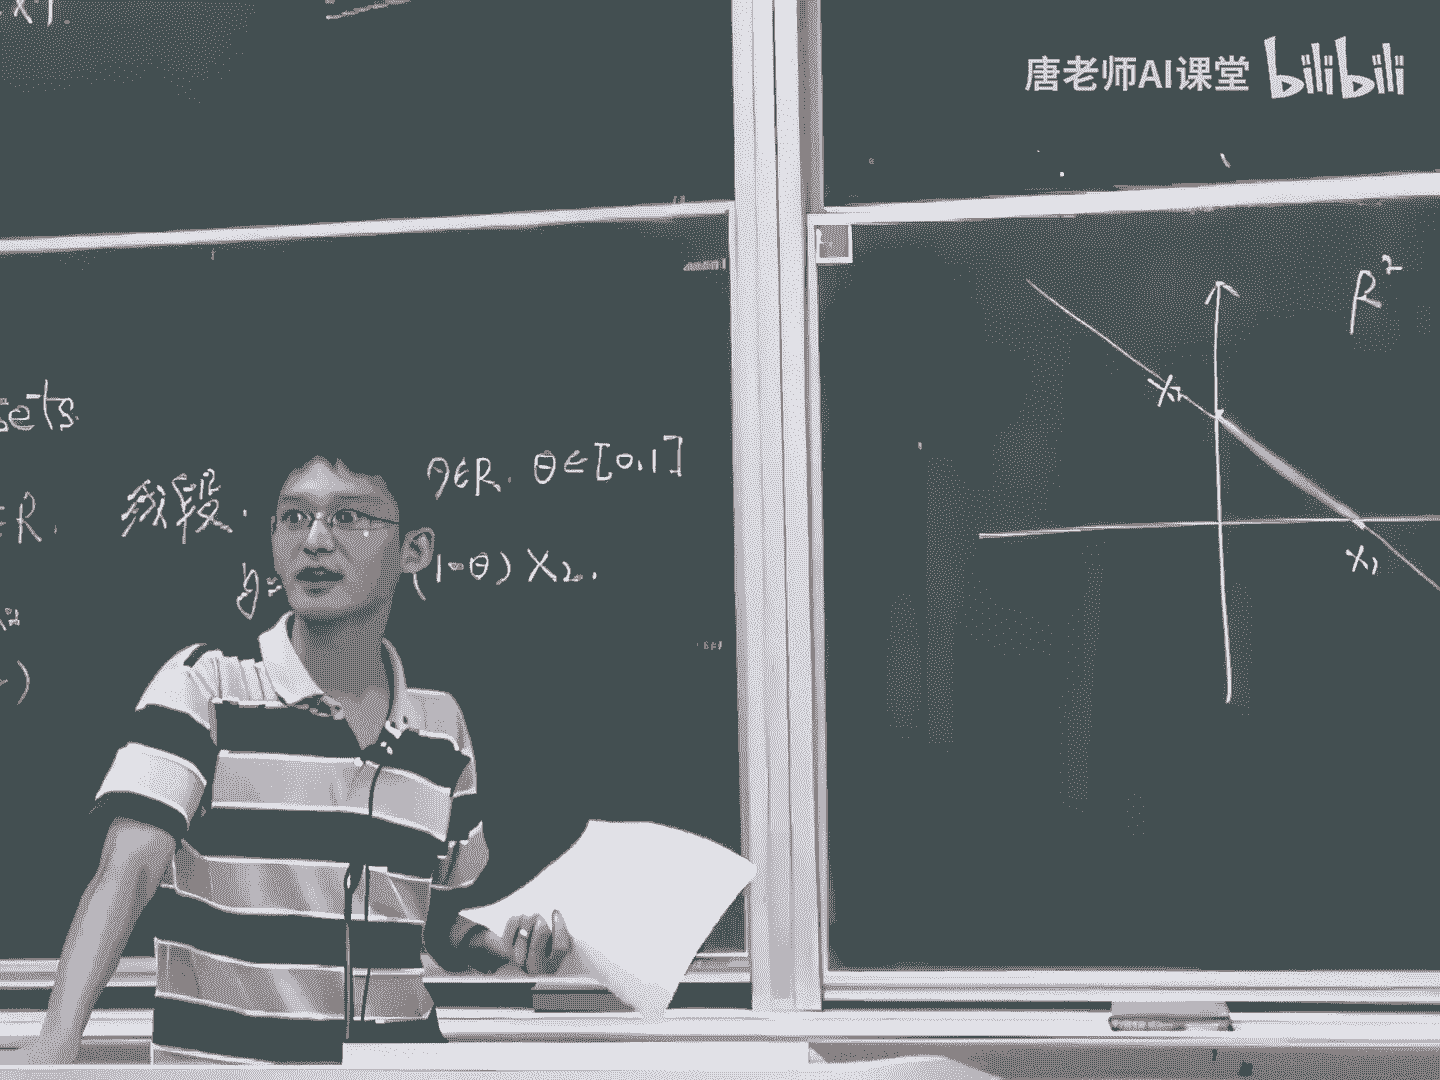 唐老师AI课堂 bilibili
sets
∈R. 线段. θ∈R. θ∈[0,1]
y= (1-θ) X₂.
R²
X₂
X₁